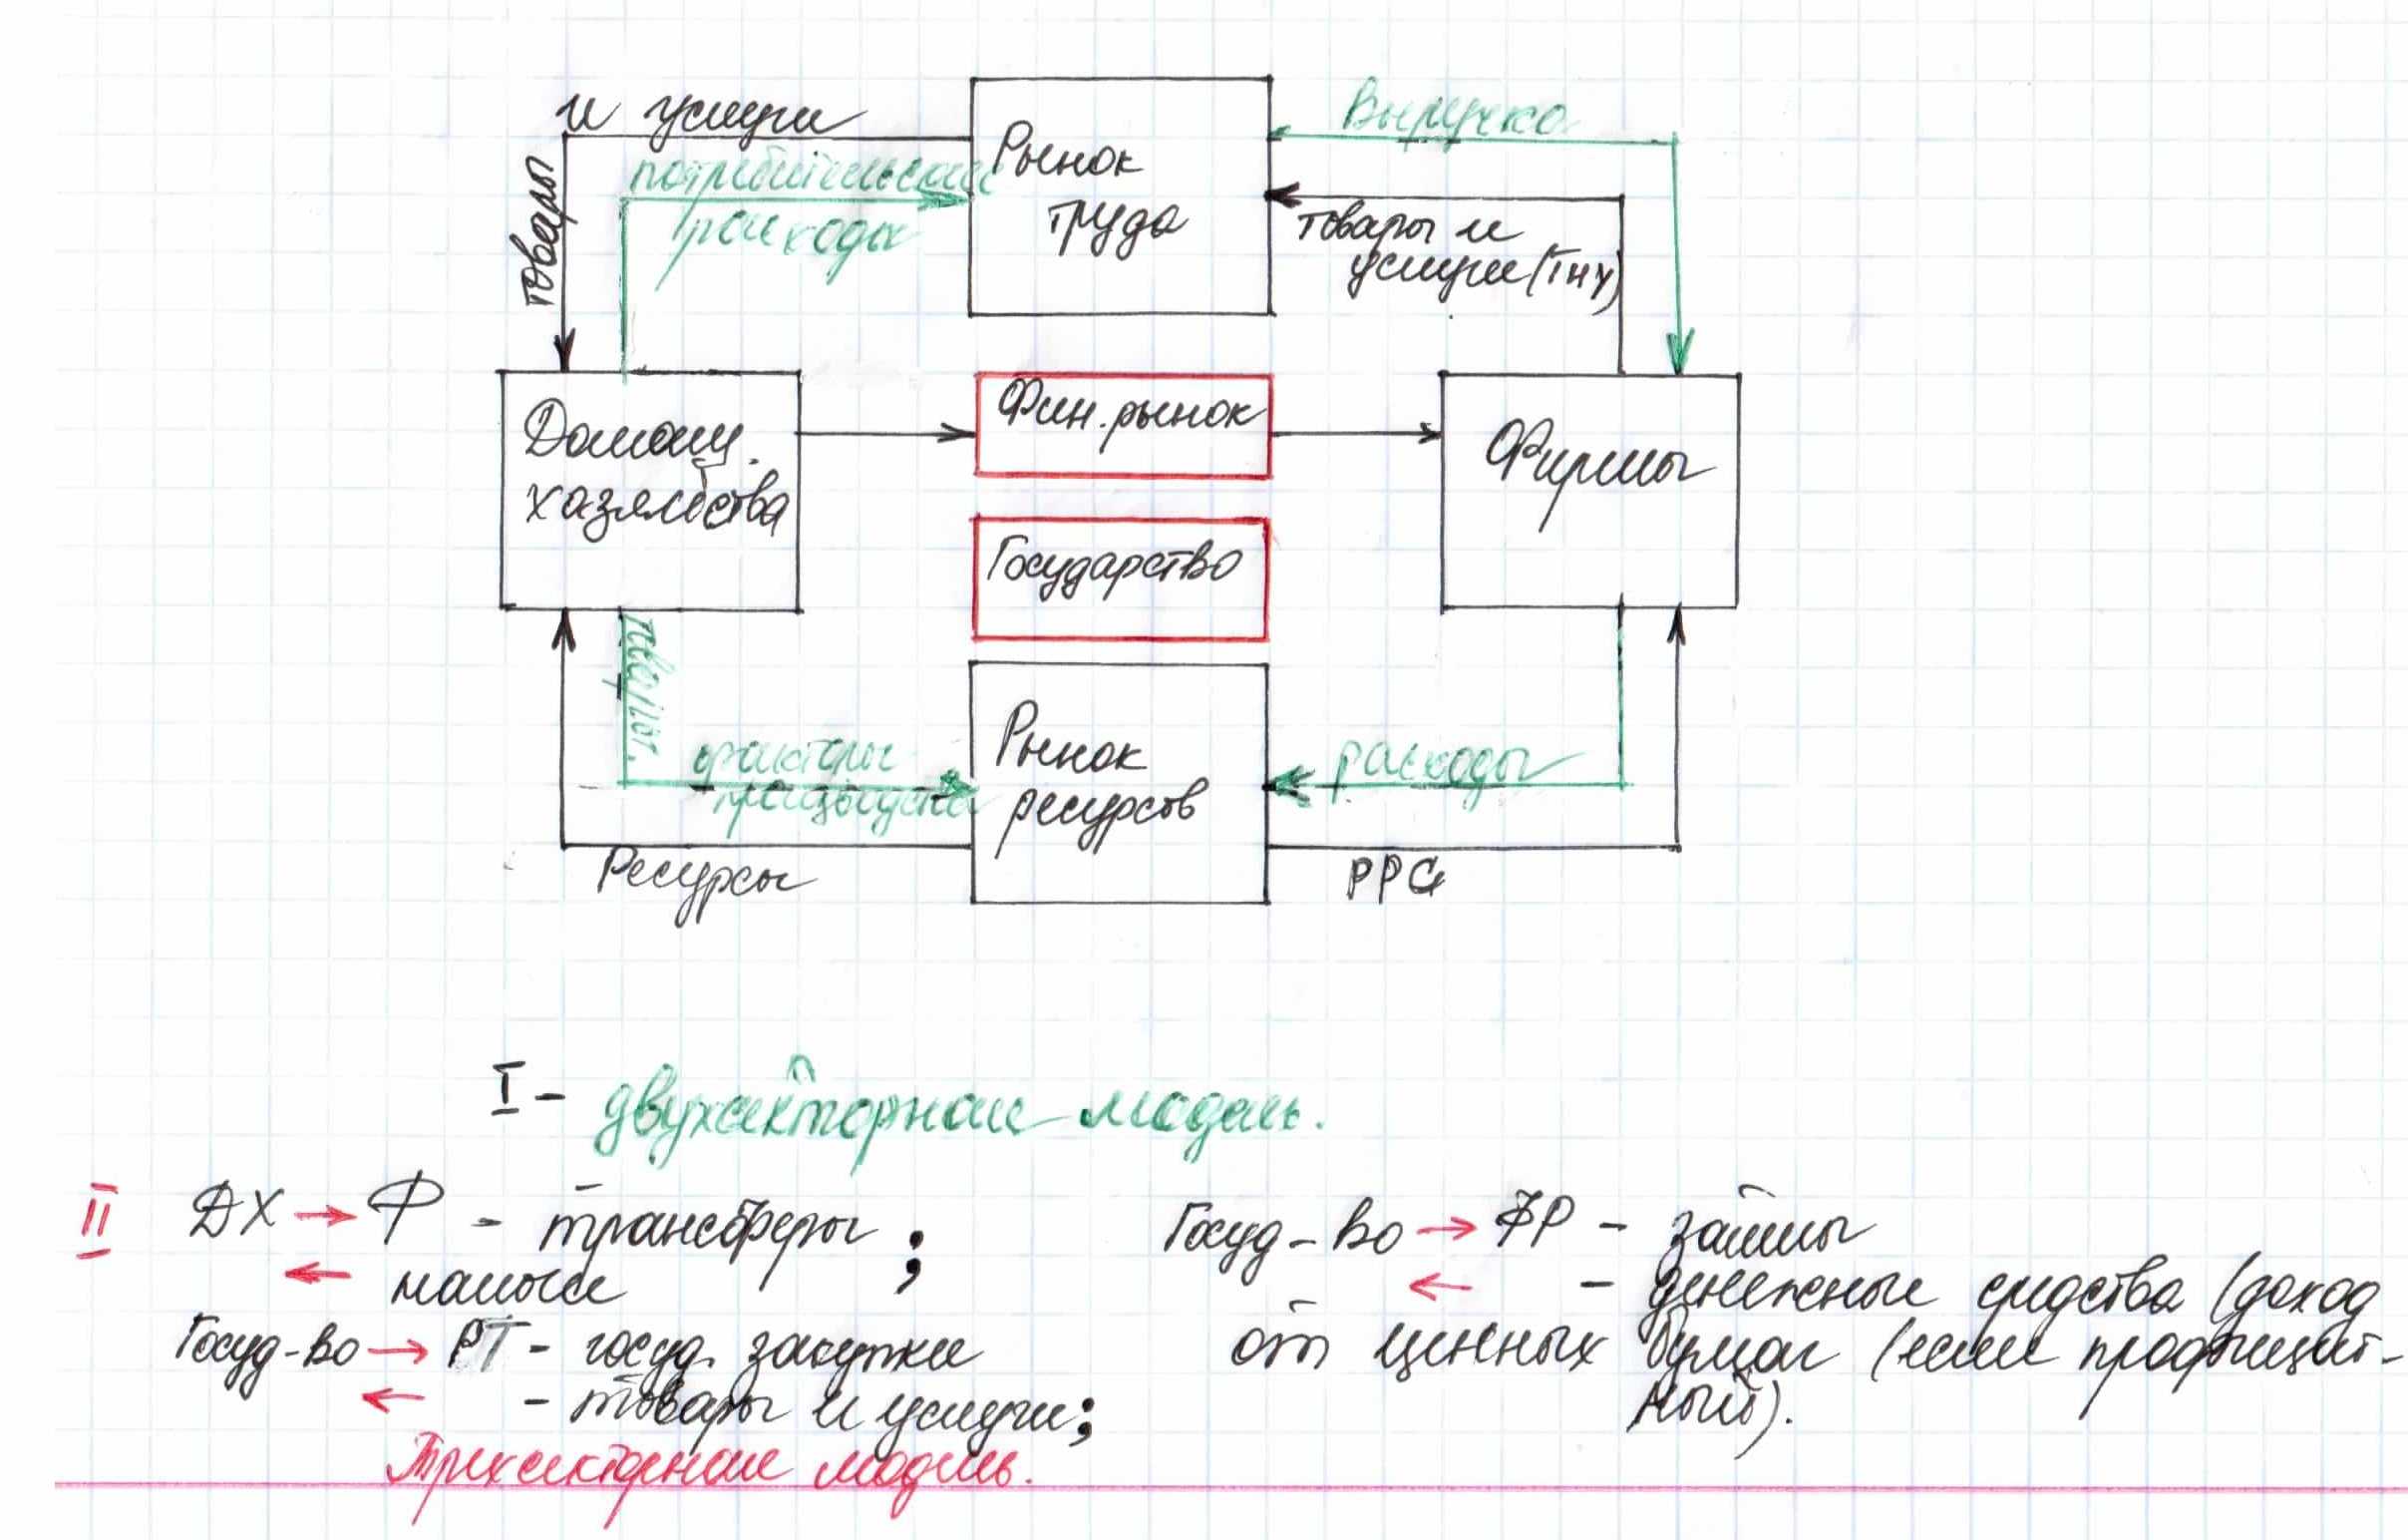 и услуги
Выручка
потребительские
Рынок
труда
товары
расходы
товары и
услуги (ТНУ)
Домаш.
хозяйства
Фин. рынок
Фирмы
Государство
факторы
производства
Рынок
ресурсов
расходы
Ресурсы
I - двухсекторная модель.
II ДХ → Ф - трансферы ;
← налоги
Госуд-во → РТ - госуд. закупки
← - товары и услуги;
Трехсекторная модель.
Госуд-во → ФР - займы
← - денежные средства (доход
от ценных бумаг (если профицит-
ный).